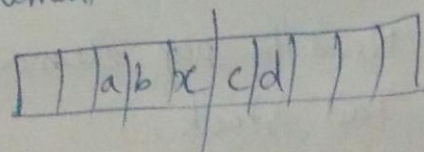 a b x c d